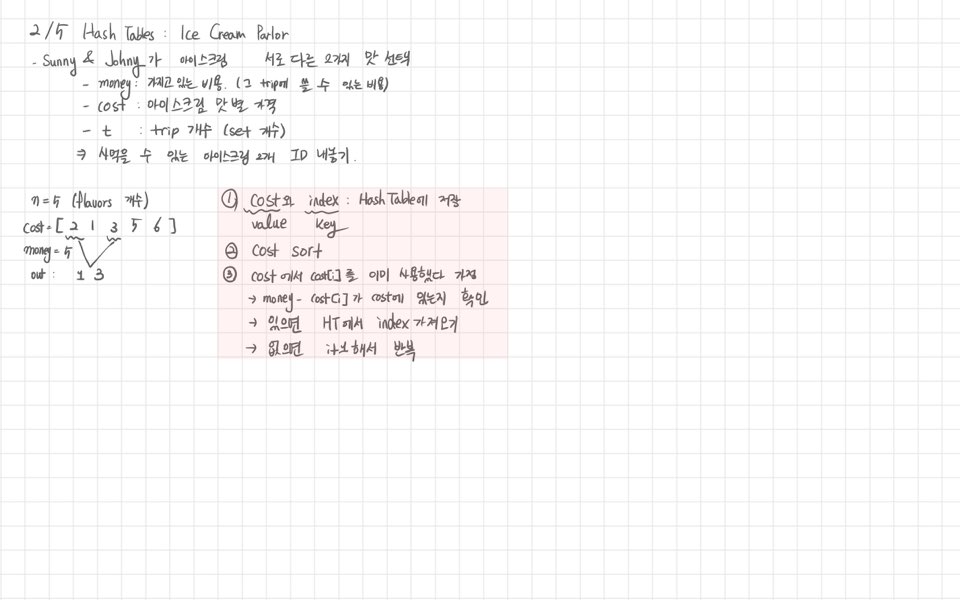 2/5 Hash Tables : Ice Cream Parlor
- Sunny & Johny가 아이스크림 서로 다른 2가지 맛 선택
- money : 가지고 있는 비용. (그 trip에 쓸 수 있는 비용)
- cost : 아이스크림 맛 별 가격
- t : trip 개수 (set 개수)
⇒ 사먹을 수 있는 아이스크림 2개 ID 내놓기.
n = 5 (flavors 개수)
cost = [ 2 1 3 5 6 ]
money = 5
out : 1 3
① cost와 index : Hash Table에 저장
value key
② cost sort
③ cost에서 cost[i]를 이미 사용했다 가정
→ money - cost[i]가 cost에 있는지 확인
→ 있으면 HT에서 index 가져오기
→ 없으면 i+1 해서 반복